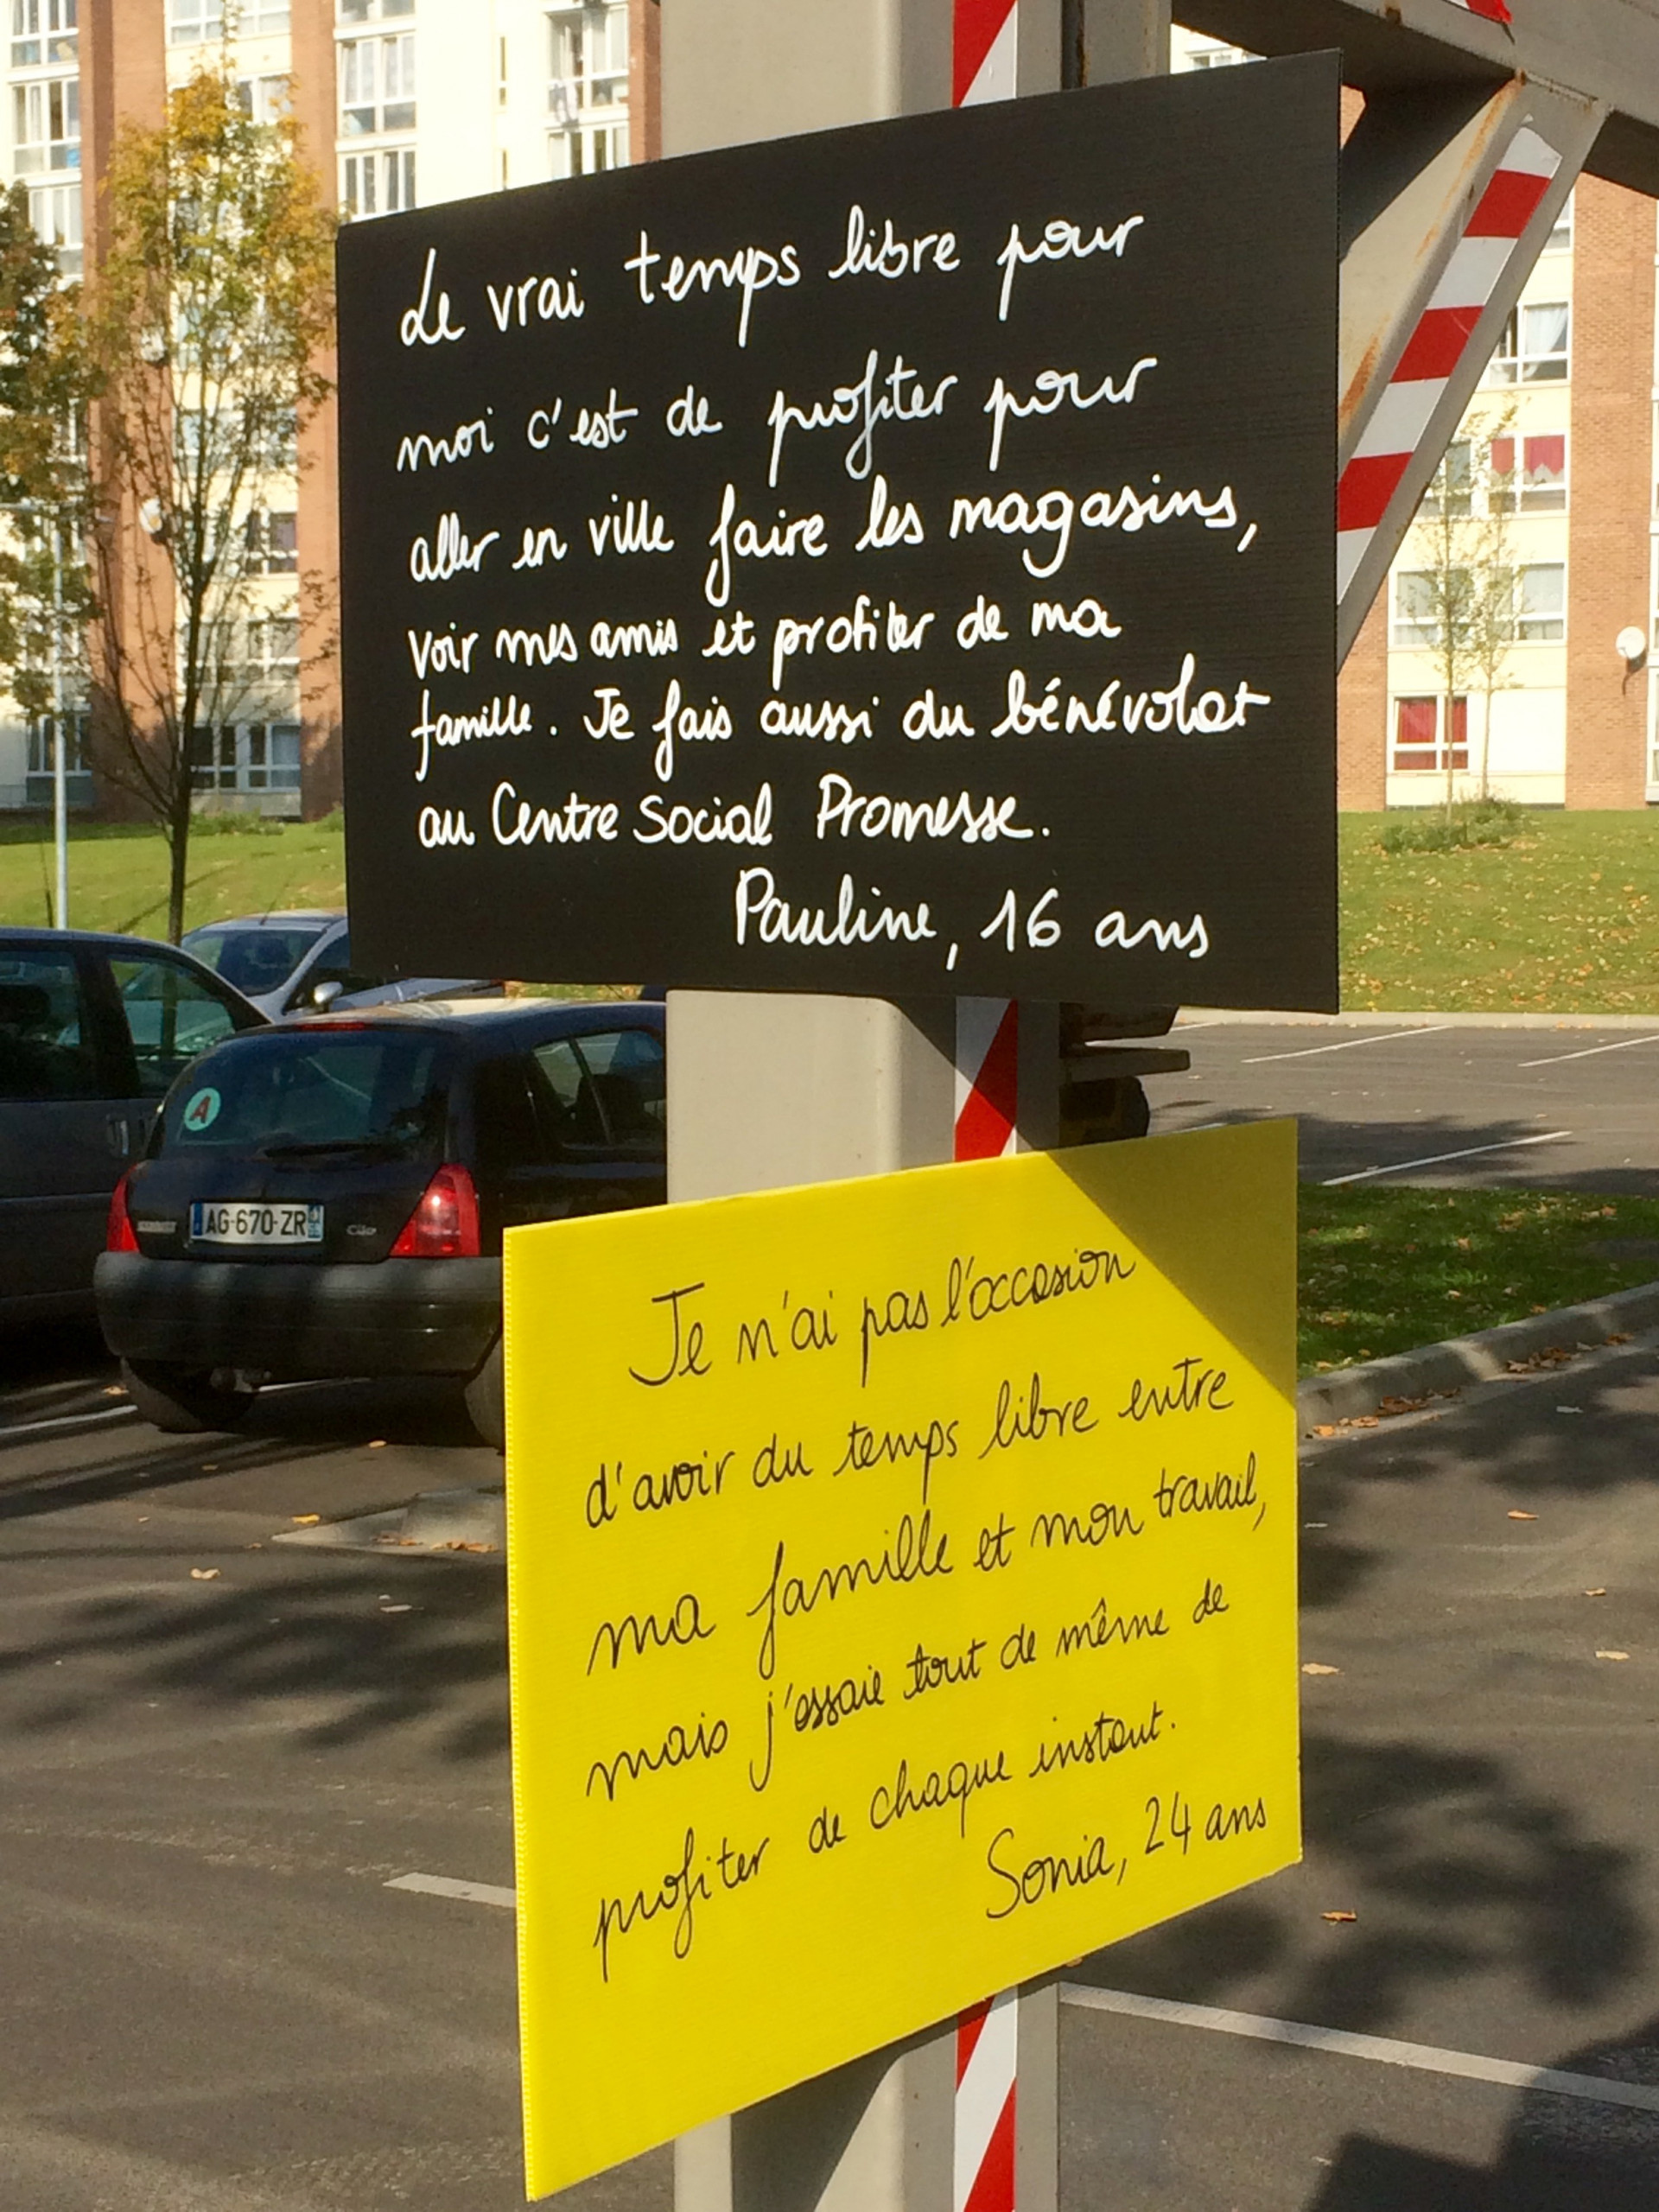 Le vrai temps libre pour
moi c'est de profiter pour
aller en ville faire les magasins,
voir mes amis et profiter de ma
famille. Je fais aussi du bénévolat
au Centre Social Promesse.
Pauline, 16 ans
A
AG-670-ZR
Clio
Je n'ai pas l'occasion
d'avoir du temps libre entre
ma famille et mon travail,
mais j'essaie tout de même de
profiter de chaque instant.
Sonia, 24 ans